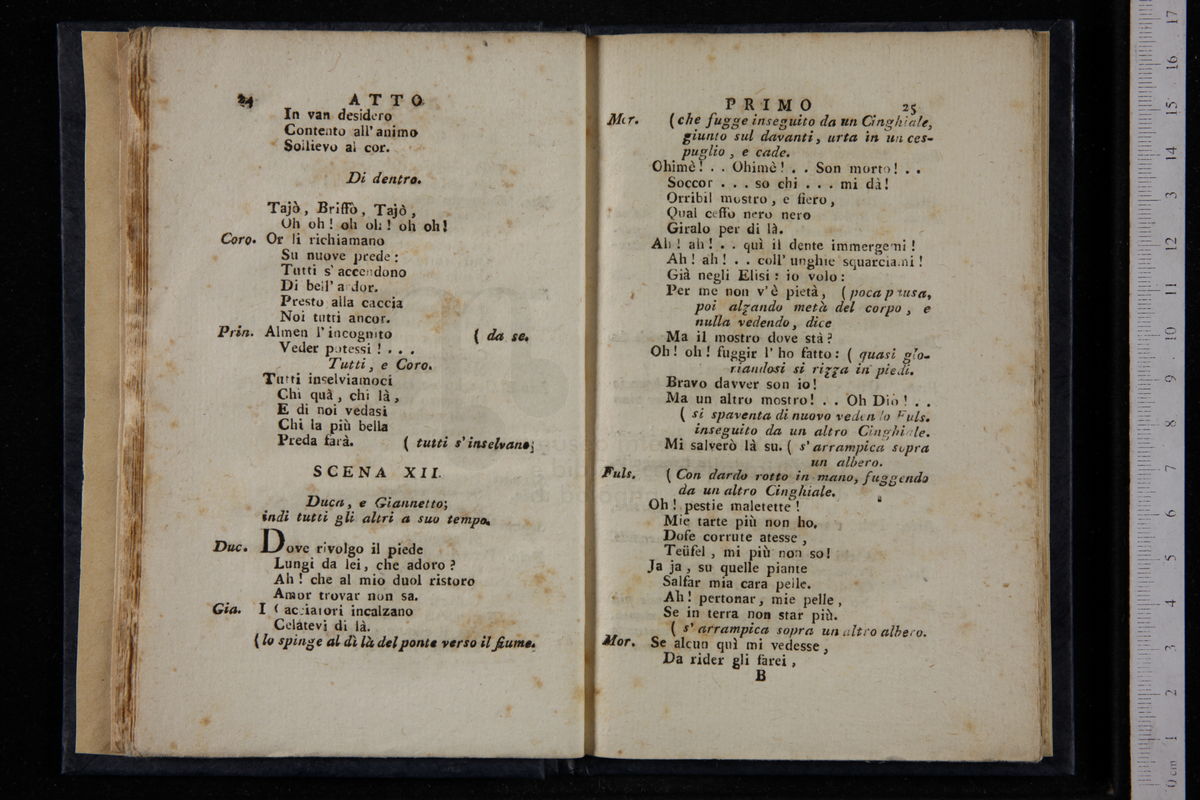 24 ATTO
In van desidero
Contento all' animo
Sollievo al cor.
Di dentro.
Tajò, Briffò, Tajò,
Oh oh! oh oh! oh oh!
Coro. Or li richiamano
Su nuove prede:
Tutti s' accendono
Di bell' ardor.
Presto alla caccia
Noi tutti ancor.
Prin. Almen l' incognito ( da se.
Veder potessi! . . .
Tutti, e Coro.
Tutti inselviamoci
Chi quà, chi là,
E di noi vedasi
Chi la più bella
Preda farà. ( tutti s' inselvano;
SCENA XII.
Duca, e Giannetto;
indi tutti gli altri a suo tempo.
Duc. Dove rivolgo il piede
Lungi da lei, che adoro?
Ah! che al mio duol ristoro
Amor trovar non sa.
Gia. I Cacciatori incalzano
Celatevi di là.
( lo spinge al dì là del ponte verso il fiume.
PRIMO 25
Mor. ( che fugge inseguito da un Cinghiale,
giunto sul davanti, urta in un ces-
puglio, e cade.
Ohimè! . . Ohimè! . . Son morto! . .
Soccor . . . so chi . . . mi dà!
Orribil mostro, e fiero,
Qual ceffo nero nero
Giralo per di là.
Ah! ah! . . quì il dente immergemi!
Ah! ah! . . coll' unghie squarciami!
Già negli Elisi: io volo:
Per me non v' è pietà, ( poca pausa,
poi alzando metà del corpo, e
nulla vedendo, dice
Ma il mostro dove stà?
Oh! oh! fuggir l' ho fatto: ( quasi glo-
riandosi si rizza in piedi.
Bravo davver son io!
Ma un altro mostro! . . Oh Dio! . .
( si spaventa di nuovo vedendo Fuls.
inseguito da un altro Cinghiale.
Mi salverò là su. ( s' arrampica sopra
un albero.
Fuls. ( Con dardo rotto in mano, fuggendo
da un altro Cinghiale.
Oh! pestie maletette!
Mie tarte più non ho.
Dofe corrute atesse,
Teüfel, mi più non so!
Ja ja, su quelle piante
Salfar mia cara pelle.
Ah! pertonar, mie pelle,
Se in terra non star più.
( s' arrampica sopra un altro albero.
Mor. Se alcun quì mi vedesse,
Da rider gli farei,
B
0 cm 1 2 3 4 5 6 7 8 9 10 11 12 13 14 15 16 17